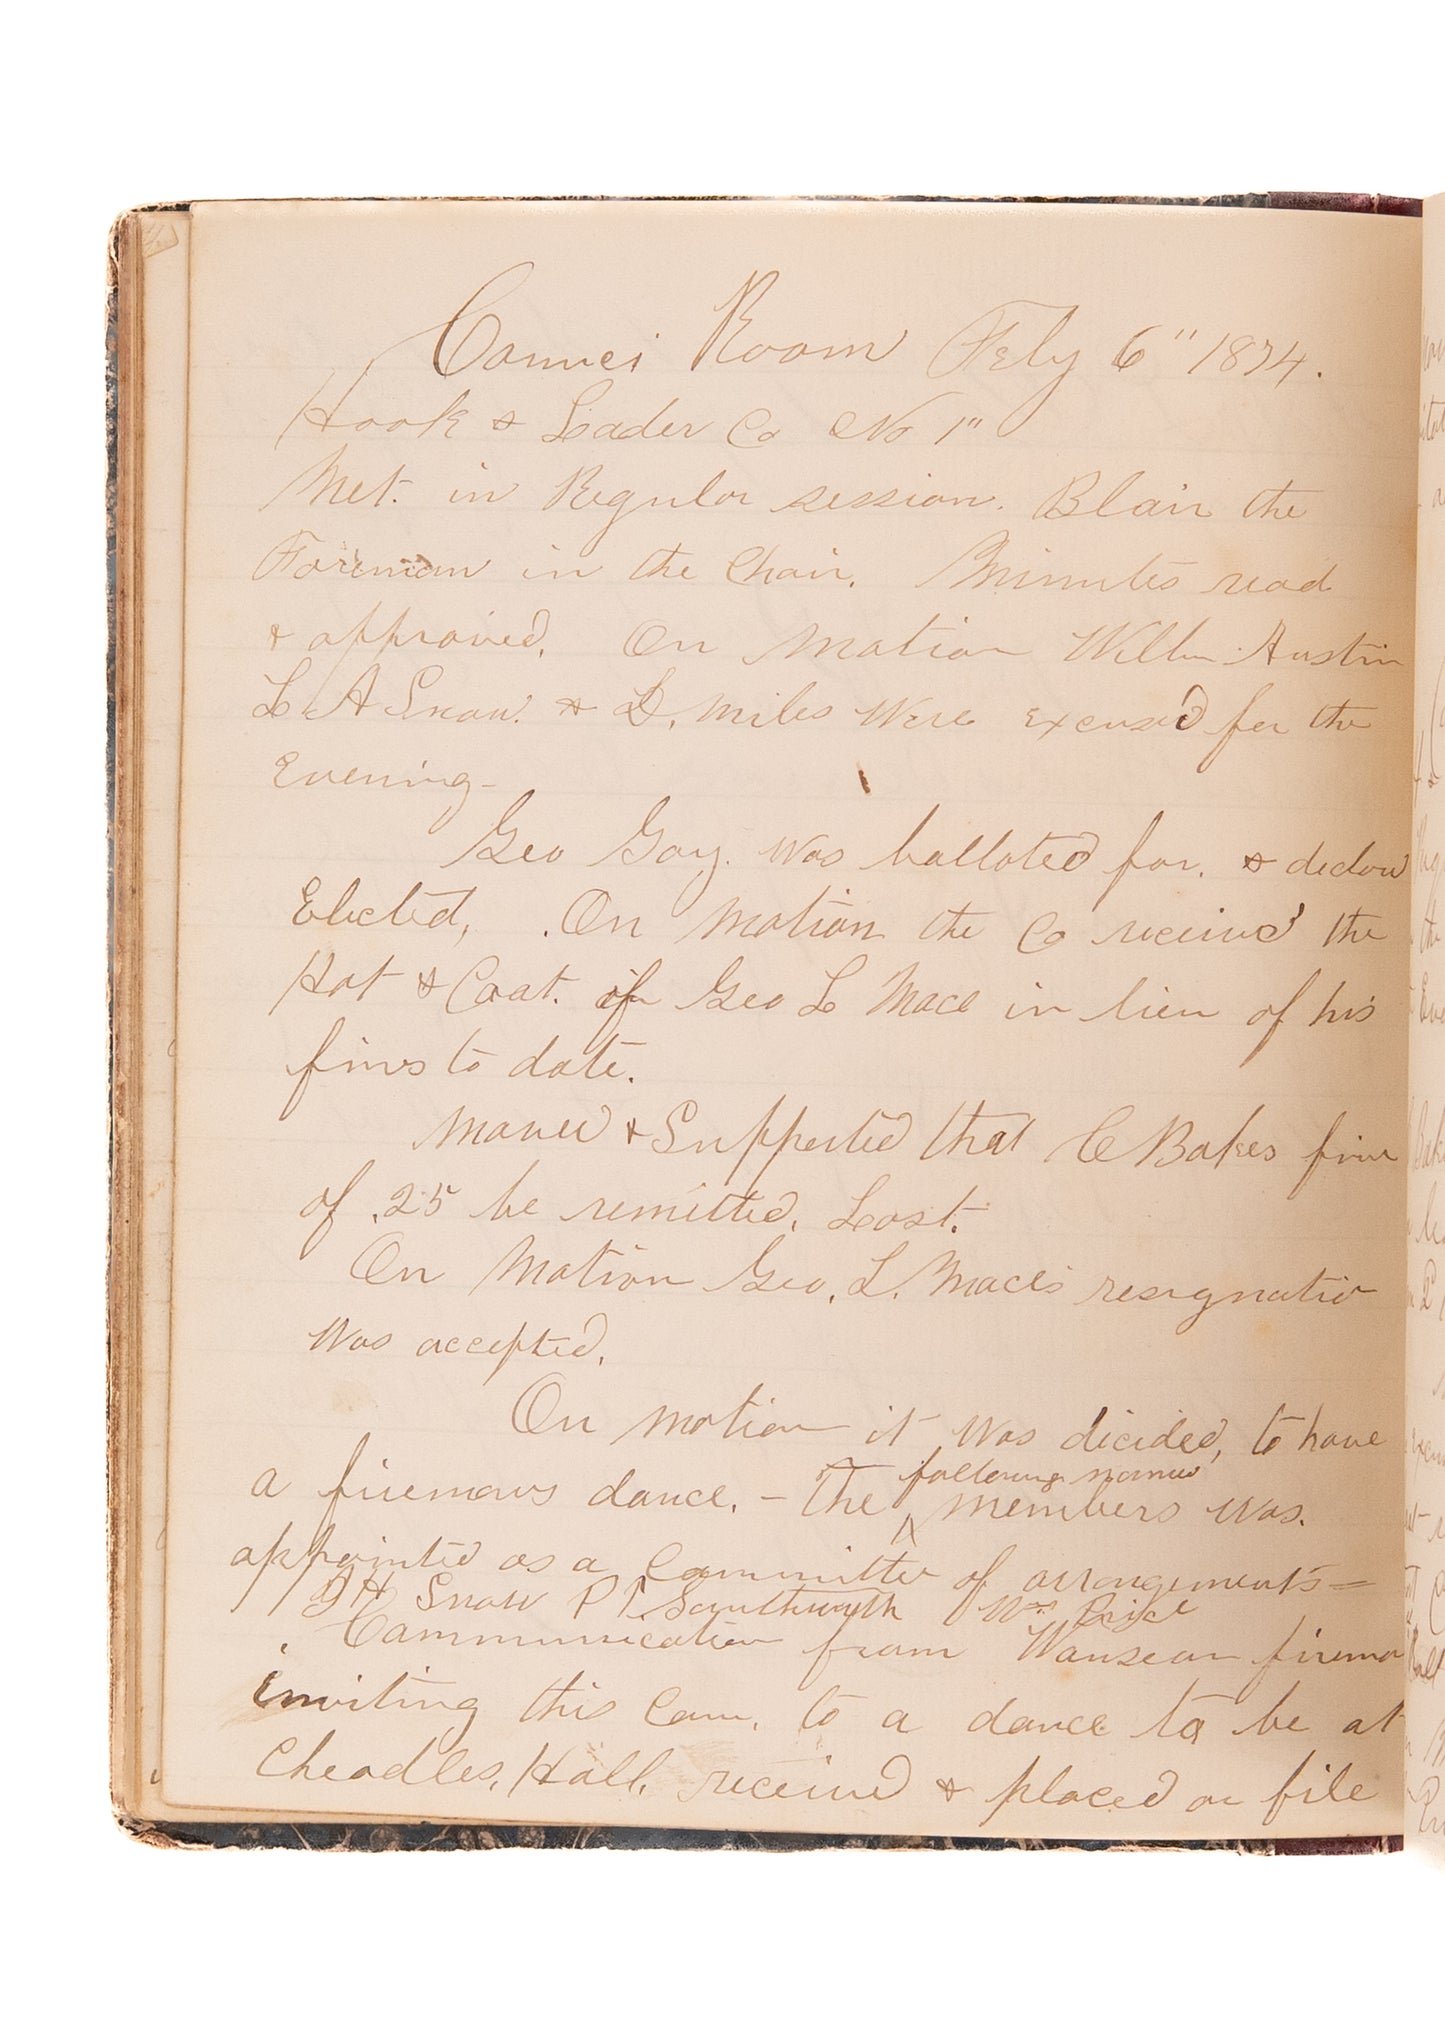 Counci Room Feby 6" 1874.
Hook & Lader Co No 1"
Met. in Regular session. Blair the
Foreman in the Chair. Minutes read
& approved. On Motion Austin
L A Snow. & D. Miles Were excused for the
Evening-
Geo Gay. Was balloted for. & declard
Elected, . On Motion the Co received the
Hat & Coat. of Geo L Mace in lieu of his
fines to date.
Moved & Supported that C Bakes fine
of .25 be remitted. Lost.
On Motion Geo. L. Mace's resignatio
Was accepted.
On Motion it Was decided, to have
a firemans dance. - The following named members was.
appointed as a Committe of arrangements=
H Snow P T Southworth Wm Price
Communication from Wauseon firema
inviting this Com. to a dance to be at
Cheadles. Hall. received & placed on file